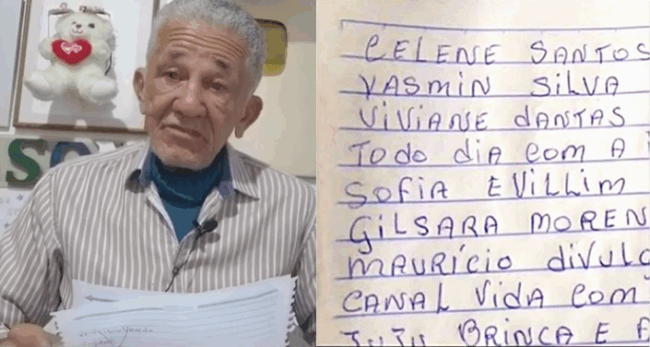 CELENE SANTOS
YASMIN SILVA
VIVIANE DANTAS
TODO DIA COM A
SOFIA EVILLIM
GILSARA MOREN
MAURÍCIO DIVULG
CANAL VIDA COM
JUJU BRINCA E